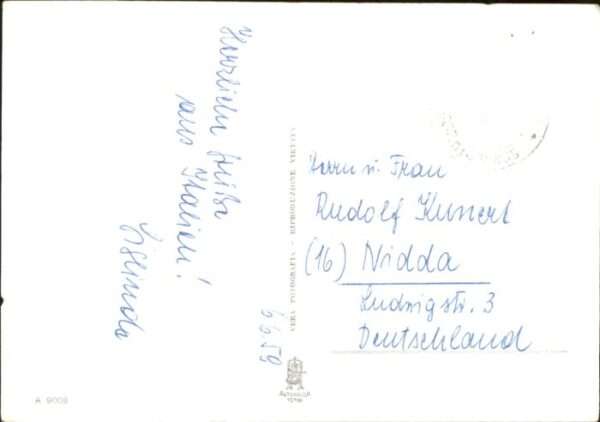 Herzlichen Grüße
aus Italien!
6/6 59
VERA FOTOGRAFIA - RIPRODUZIONE VIETATA
Herrn u. Frau
Rudolf Kunert
(16) Nidda
Ludwigstr. 3
Deutschland
A 9008